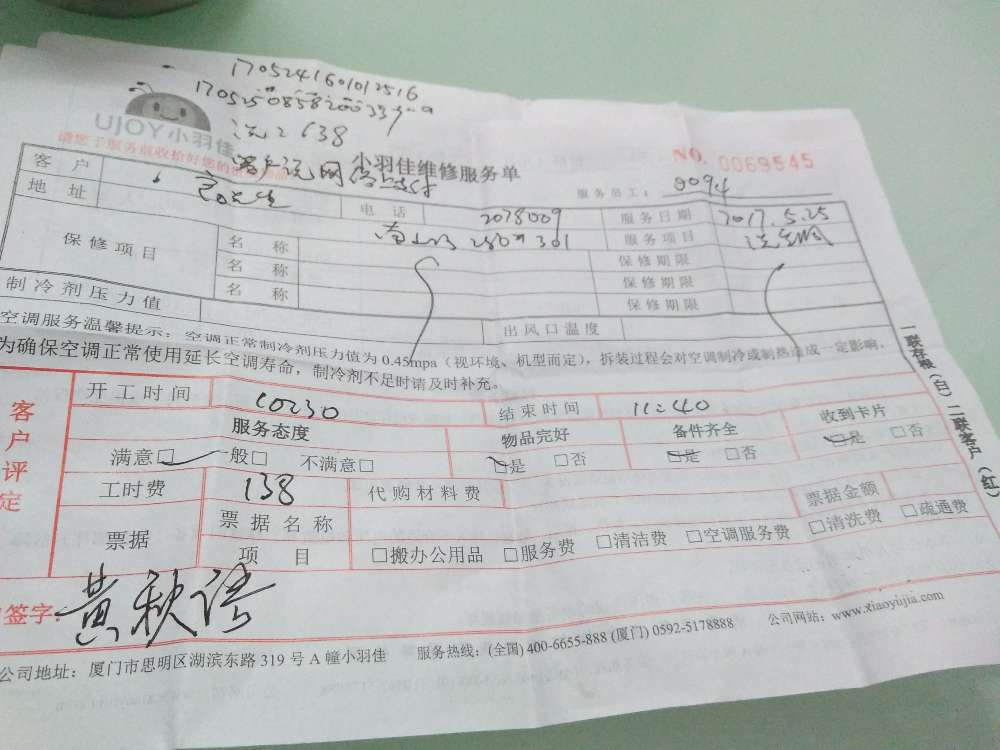 1705241601012516
UJOY小羽佳
洗2638
请您于服务前收拾好您的
小羽佳维修服务单
NO. 0069545
服务员工: 0094
客户
电话 2078009
服务日期 2017.5.25
地址
服务项目
保修项目
名称
保修期限
名称
保修期限
名称
保修期限
制冷剂压力值
出风口温度
空调服务温馨提示:空调正常制冷剂压力值为0.45mpa(视环境、机型而定),拆装过程会对空调制冷或制热造成一定影响,
为确保空调正常使用延长空调寿命,制冷剂不足时请及时补充。
一联存根(白)二联客户(红)
客户评定
开工时间 10:30
结束时间 11:40
服务态度
物品完好
备件齐全
收到卡片
满意□ 一般□ 不满意□
□是 □否
□是 □否
□是 □否
工时费 138
代购材料费
票据
票据名称
票据金额
项目
□搬办公用品 □服务费 □清洁费 □空调服务费 □清洗费 □疏通费
签字: 黄秋语
公司地址:厦门市思明区湖滨东路319号A幢小羽佳 服务热线:(全国)400-6655-888 (厦门)0592-5178888 公司网站:www.xiaoyujia.com